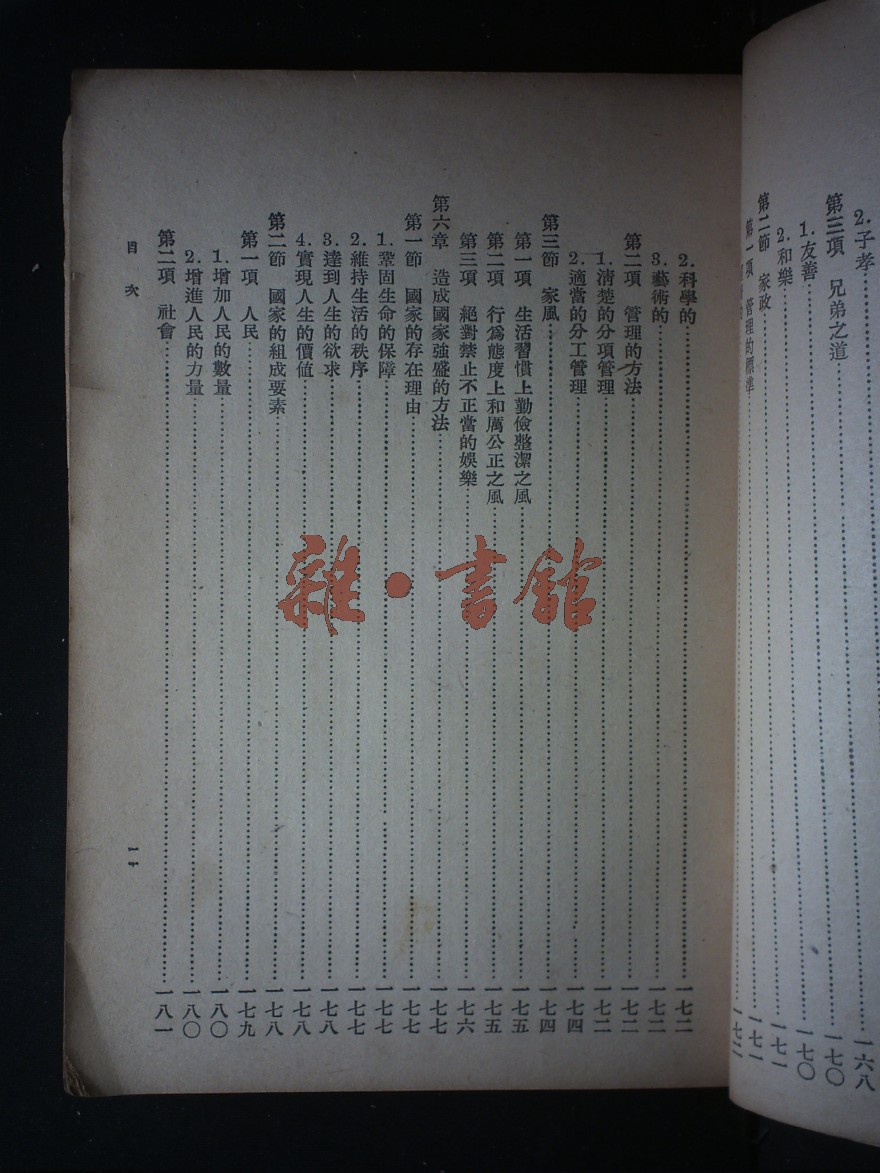 2.子孝……一六八
第三項　兄弟之道……一七〇
1.友善……一七〇
2.和樂……一七一
第二節　家政……一七一
第一項　管理的標準……
2.科學的……一七二
3.藝術的……一七二
第二項　管理的方法……一七二
1.清楚的分項管理……一七二
2.適當的分工管理……一七四
第三節　家風……一七四
第一項　生活習慣上勤儉整潔之風……一七五
第二項　行爲態度上和厲公正之風……一七五
第三項　絕對禁止不正當的娛樂……一七六
第六章　造成國家強盛的方法……一七七
第一節　國家的存在理由……一七七
1.鞏固生命的保障……一七七
2.維持生活的秩序……一七七
3.達到人生的欲求……一七八
4.實現人生的價値……一七八
第二節　國家的組成要素……一七八
第一項　人民……一七九
1.增加人民的數量……一八〇
2.增進人民的力量……一八〇
第二項　社會……一八一
目次
雜·書館